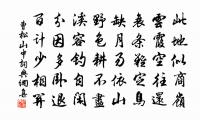 此地似商嶺
雲霞空往還
衰條難定鳥
缺月易依山
野色耕不盡
溪容釣自閑
分因多臥退
百計少相關
曹松山中詞典網集